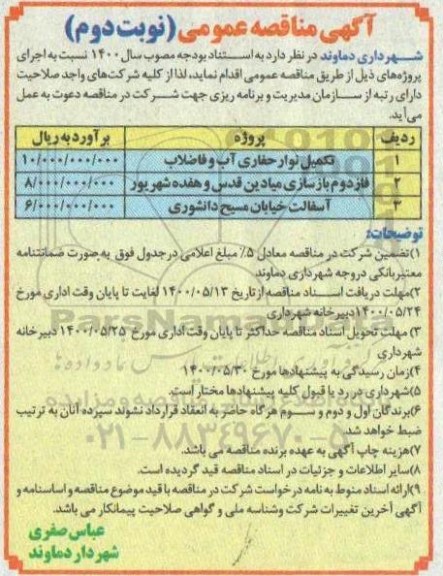 آگهی مناقصه عمومی (نوبت دوم)
شهرداری دماوند در نظر دارد به استناد بودجه مصوب سال ۱۴۰۰ نسبت به اجرای
پروژه‌های ذیل از طریق مناقصه عمومی اقدام نماید، لذا از کلیه شرکت‌های واجد صلاحیت
دارای رتبه از سازمان مدیریت و برنامه ریزی جهت شرکت در مناقصه دعوت به عمل
می‌آید.
ردیف پروژه برآورد به ریال
۱ تکمیل نوار حفاری آب و فاضلاب ۱۰/۰۰۰/۰۰۰/۰۰۰
۲ فاز دوم بازسازی میادین قدس و هفده شهریور ۸/۰۰۰/۰۰۰/۰۰۰
۳ آسفالت خیابان مسیح دانشوری ۶/۰۰۰/۰۰۰/۰۰۰
توضیحات:
۱)تضمین شرکت در مناقصه معادل ۵٪ مبلغ اعلامی در جدول فوق به صورت ضمانتنامه
معتبر بانکی در وجه شهرداری دماوند
۲)مهلت دریافت اسناد مناقصه از تاریخ ۱۴۰۰/۰۵/۱۳ لغایت تا پایان وقت اداری مورخ
۱۴۰۰/۰۵/۲۴ دبیرخانه شهرداری
۳) مهلت تحویل اسناد مناقصه حداکثر تا پایان وقت اداری مورخ ۱۴۰۰/۰۵/۲۵ دبیرخانه
شهرداری
۴)زمان رسیدگی به پیشنهادها مورخ ۱۴۰۰/۰۵/۳۰
۵)شهرداری در رد یا قبول کلیه پیشنهادها مختار است.
۶)برندگان اول و دوم و سوم هرگاه حاضر به انعقاد قرارداد نشوند سپرده آنان به ترتیب
ضبط خواهد شد.
۷)هزینه چاپ آگهی به عهده برنده مناقصه می باشد.
۸)سایر اطلاعات و جزئیات در اسناد مناقصه قید گردیده است.
۹)ارائه اسناد منوط به نامه درخواست شرکت در مناقصه با قید موضوع مناقصه و اساسنامه و
آگهی آخرین تغییرات شرکت وشناسه ملی و گواهی صلاحیت پیمانکار می باشد.
عباس صفری
شهردار دماوند
ParsNamad
۰۲۱-۸۸۳۴۹۶۷۰-۵